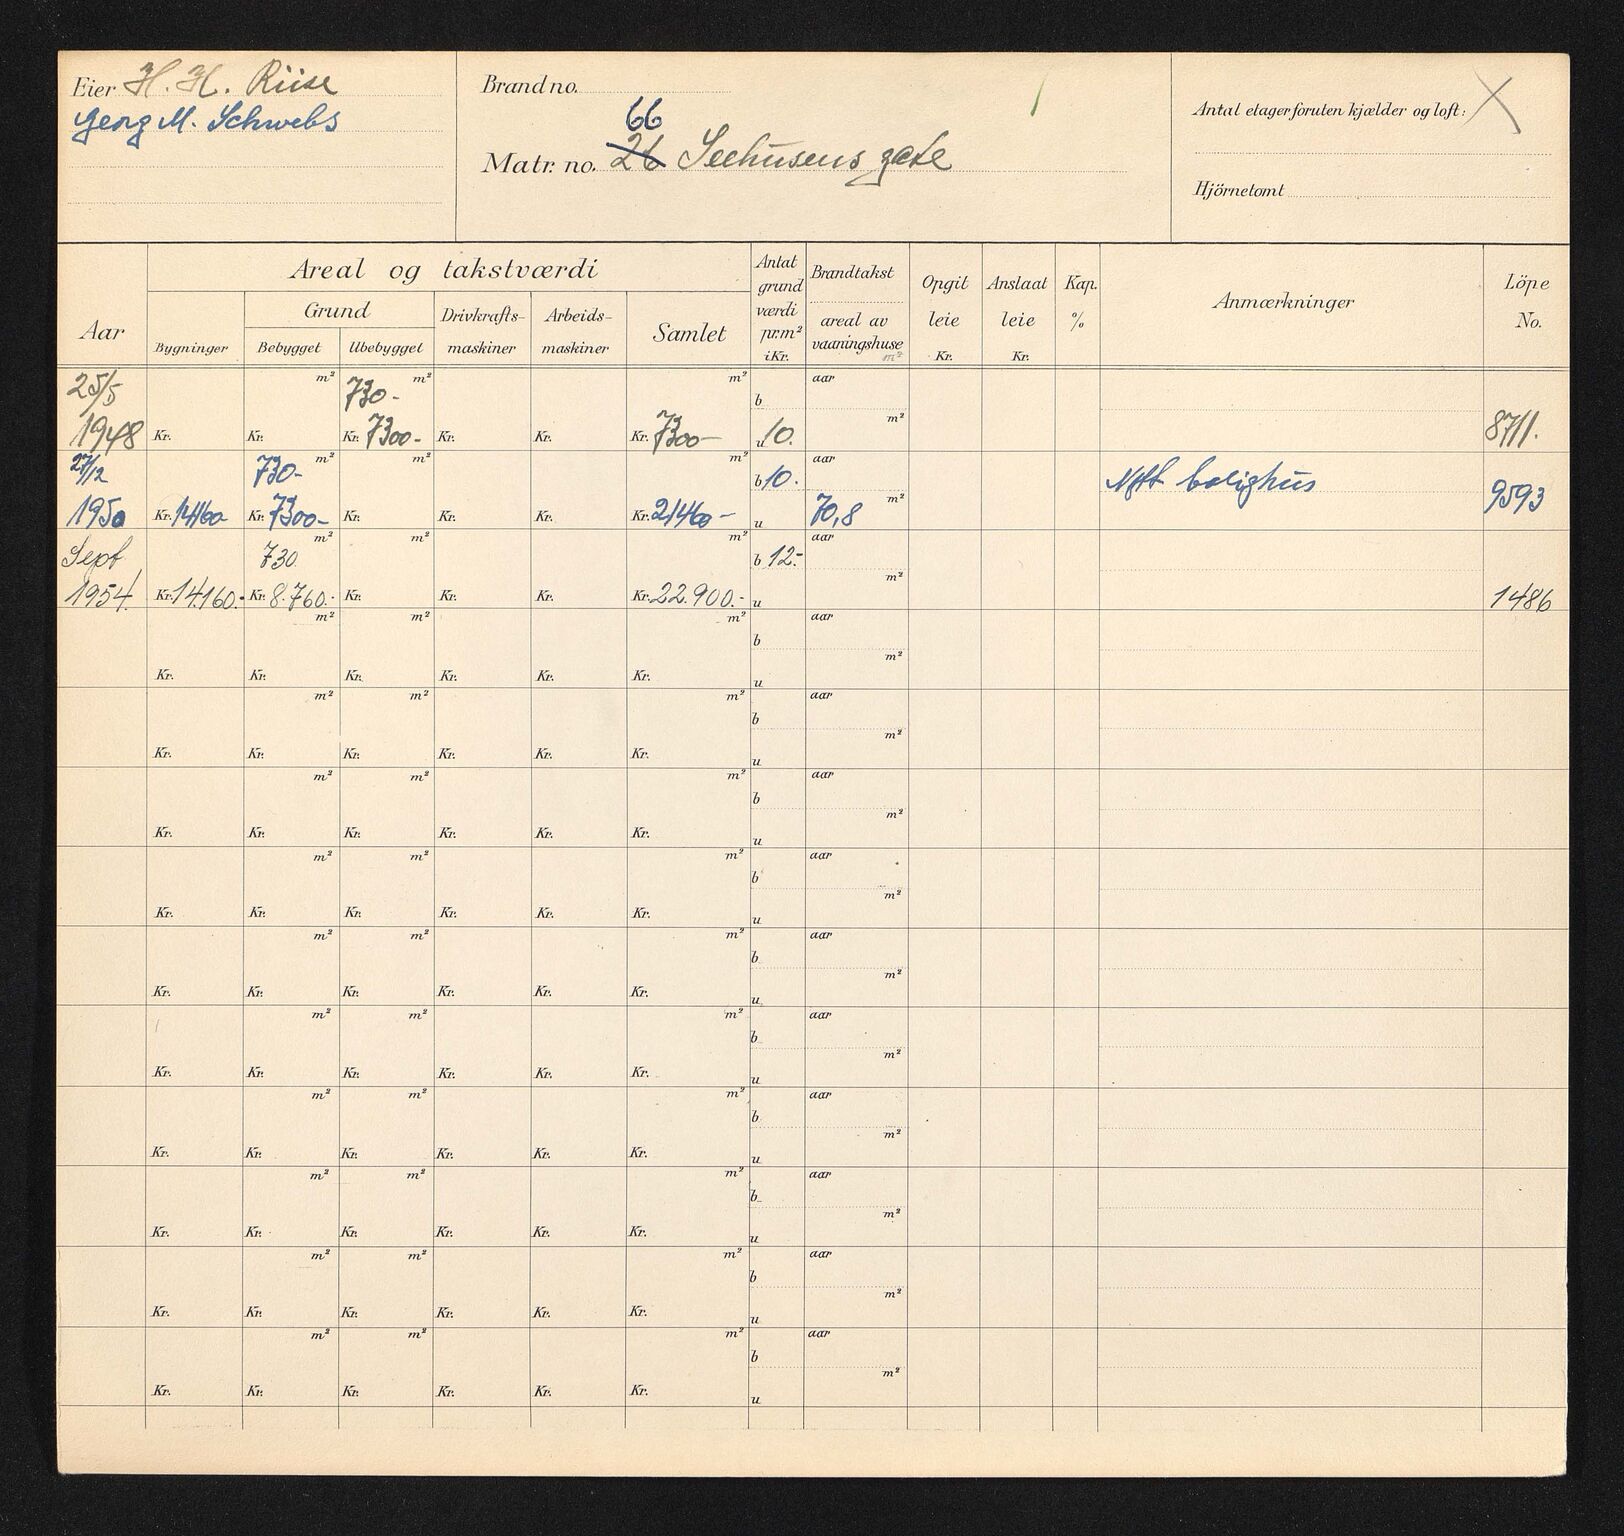 Eier H. H. Riise
Georg M. Schwebs
Brand no.
66
Matr. no. 26 Seehusens gate
Antal etager foruten kjælder og loft: X
Hjörnetomt
Aar
Areal og takstværdi
Grund
Bygninger Bebygget Ubebygget Drivkrafts-maskiner Arbeids-maskiner Samlet
Antat grund værdi pr. m² i Kr.
Brandtakst
areal av vaaningshuse m²
Opgit leie Kr.
Anslaat leie Kr.
Kap. %
Anmærkninger
Löpe No.
25/5 m² 730- m² m² b aar
1948 Kr. Kr. Kr. 7300- Kr. Kr. Kr. 7300- u 10. m² 8711.
27/12 730- m² m² m² b 10. aar Nytt bolighus
1950 Kr. 14160 Kr. 7300- Kr. Kr. Kr. Kr. 21460- u 70,8 m² 9593
Sept 730 m² m² m² b 12.- aar
1954. Kr. 14.160.- Kr. 8.760.- Kr. Kr. Kr. Kr. 22.900.- u m² 1486
m² m² m² b aar
Kr. Kr. Kr. Kr. Kr. Kr. u m²
m² m² m² b aar
Kr. Kr. Kr. Kr. Kr. Kr. u m²
m² m² m² b aar
Kr. Kr. Kr. Kr. Kr. Kr. u m²
m² m² m² b aar
Kr. Kr. Kr. Kr. Kr. Kr. u m²
m² m² m² b aar
Kr. Kr. Kr. Kr. Kr. Kr. u m²
m² m² m² b aar
Kr. Kr. Kr. Kr. Kr. Kr. u m²
m² m² m² b aar
Kr. Kr. Kr. Kr. Kr. Kr. u m²
m² m² m² b aar
Kr. Kr. Kr. Kr. Kr. Kr. u m²
m² m² m² b aar
Kr. Kr. Kr. Kr. Kr. Kr. u m²
m² m² m² b aar
Kr. Kr. Kr. Kr. Kr. Kr. u m²